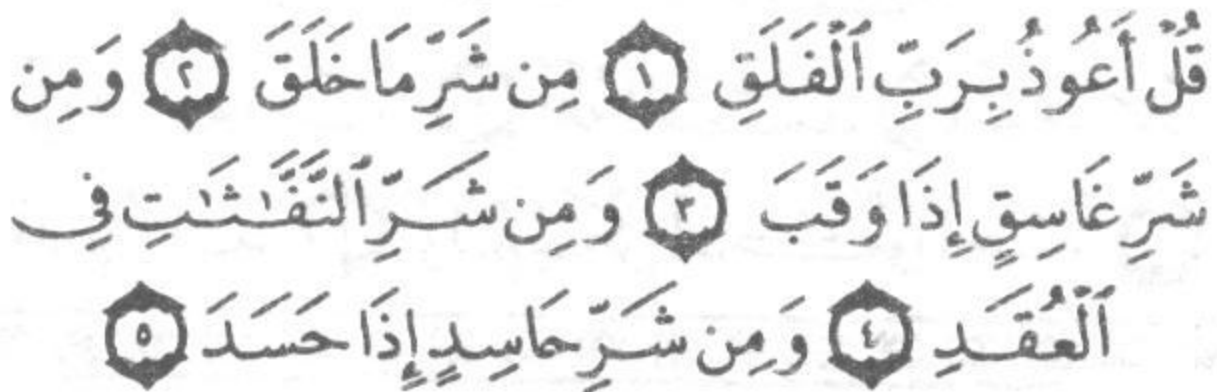 قُلْ أَعُوذُ بِرَبِّ ٱلْفَلَقِ ١ مِن شَرِّ مَا خَلَقَ ٢ وَمِن
شَرِّ غَاسِقٍ إِذَا وَقَبَ ٣ وَمِن شَرِّ ٱلنَّفَّٰثَٰتِ فِي
ٱلْعُقَدِ ٤ وَمِن شَرِّ حَاسِدٍ إِذَا حَسَدَ ٥